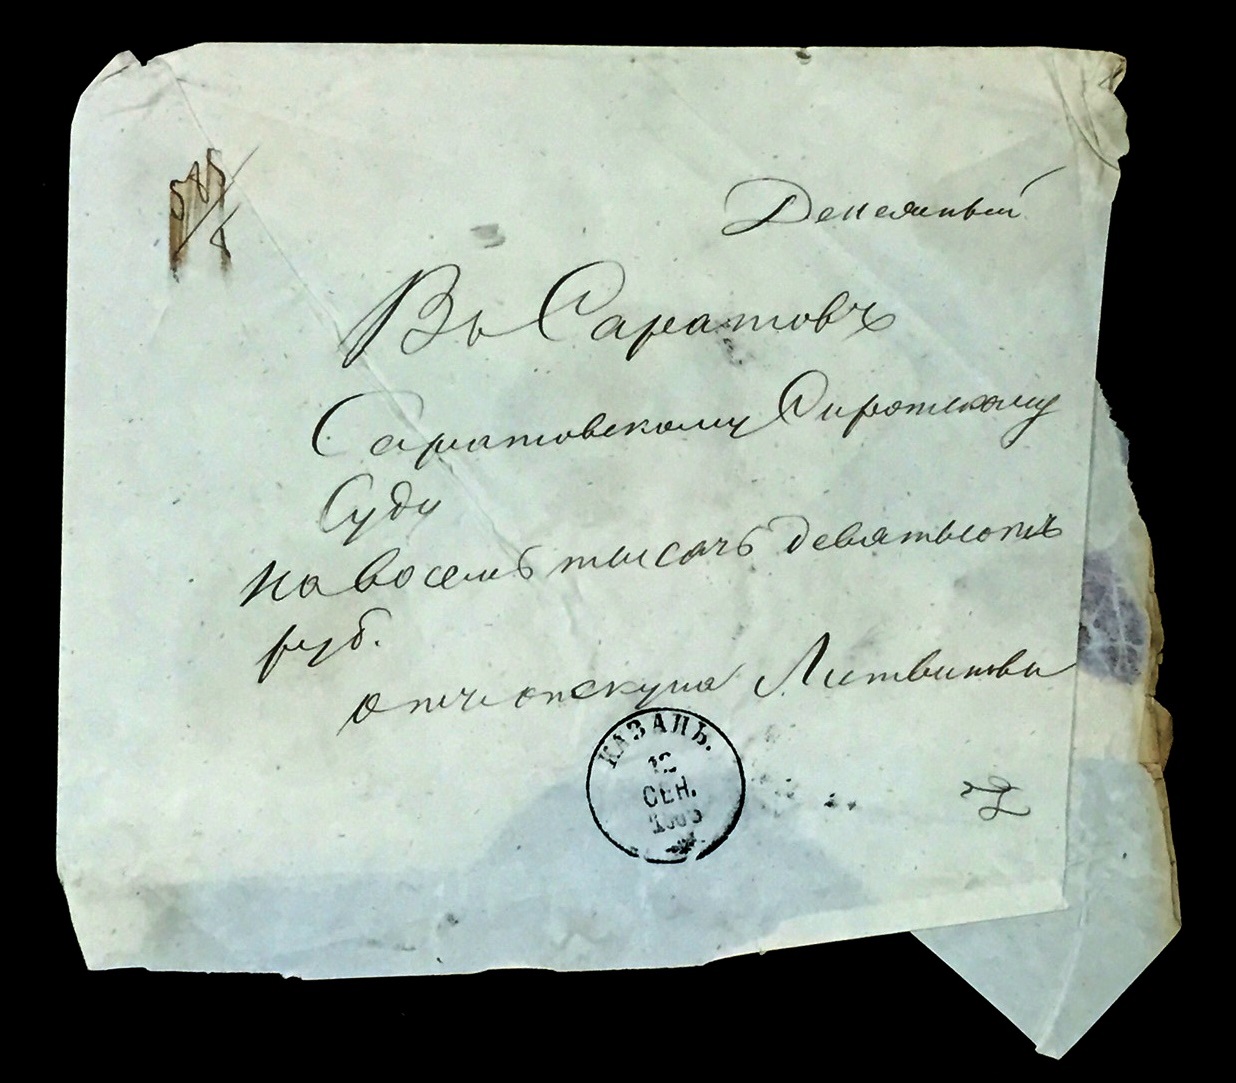 Денежный
Въ Саратовъ
Саратовскому Сиротскому
Суду
на восемь тысячъ девятьсотъ
руб.
отъ опекуна Литвинова
КАЗАНЬ.
12
СЕН.